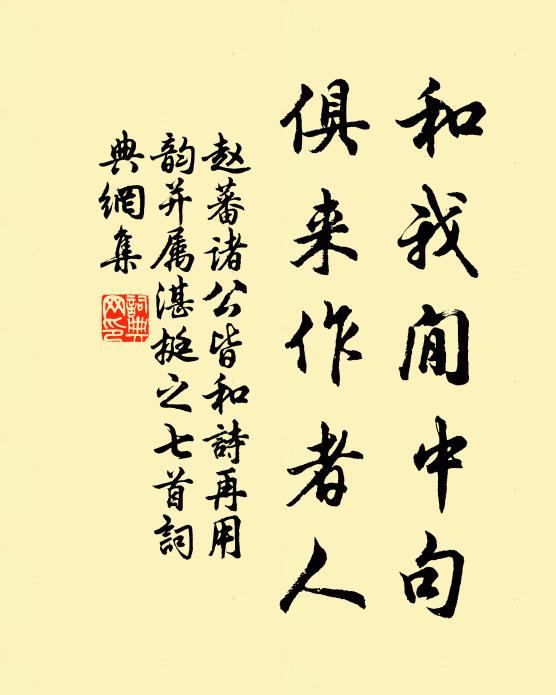 和我閒中句
俱来作者人
赵蕃诸公皆和詩再用
韵并属湛挺之七首詞
典網集
詞典
网印